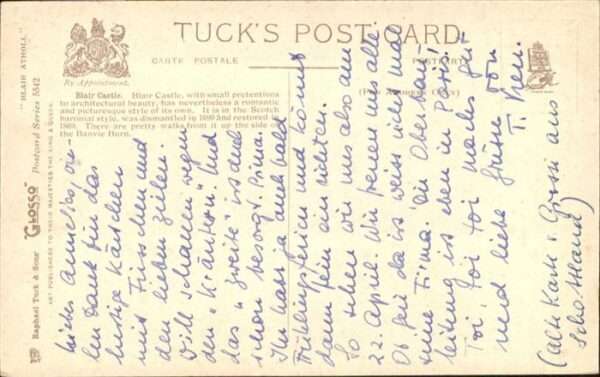 TUCK'S POST CARD
CARTE POSTALE
POSTKARTE
By Appointment.
(For Address Only)
Blair Castle. Blair Castle, with small pretentions
to architectural beauty, has nevertheless a romantic
and picturesque style of its own. It is in the Scotch
baronial style, was dismantled in 1690 and restored in
1869. There are pretty walks from it up the side of
the Banvie Burn.
"BLAIR ATHOLL"
"GLOSSO" Postcard Series 5542
Raphael Tuck & Sons'
ART PUBLISHERS TO THEIR MAJESTIES THE KING & QUEEN.
len Dank für das
lustige Kärtchen
mit
den lieben Zeilen.
Will schauen wegen
den "Kräutern". Und
das "zweite" ist auch
schon besorgt. Prima.
Ihr habt ja auch bald
Frühlingsferien und könnt
dann fein ein richten.
So sehen wir uns also am
22. April. Wir freuen uns alle
Ob Sie da ist weiss ich nicht
seine Firma. Die Oberbau
leitung ist eben in Paris!
Toi, toi toi
und liebe Grüsse von
(alte Karte v. aus
Schottland)